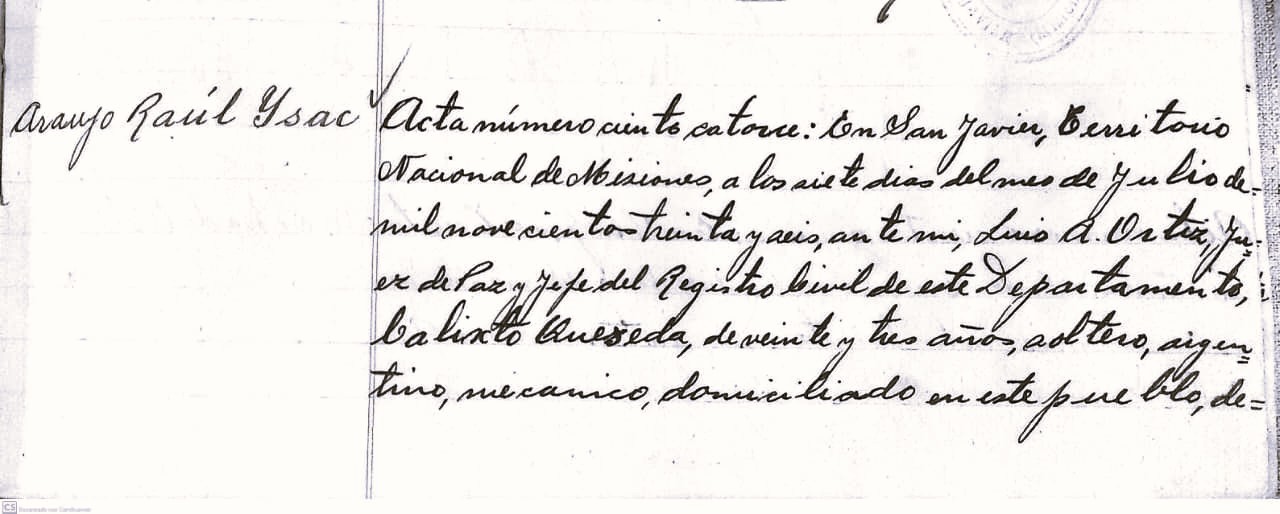 Araujo Raúl Ysac
Acta número ciento catorce: En San Javier, Territorio
Nacional de Misiones, a los siete dias del mes de Julio de=
mil novecientos treinta y seis, ante mi, Luis A. Ortiz, Ju=
ez de Paz y Jefe del Registro Civil de este Departamento,
Calixto Quezeda, de veinte y tres años, soltero, argen=
tino, mecanico, domiciliado en este pueblo, de=
CS Escaneado con CamScanner